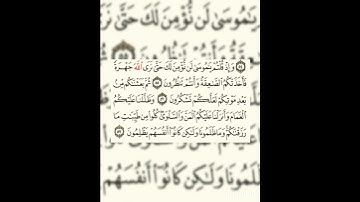 يَٰمُوسَىٰ لَن نُّؤْمِنَ لَكَ حَتَّىٰ نَرَى
وَأَنتُمْ تَنظُرُونَ ٥٥
٥٤ وَإِذْ قُلْتُمْ يَٰمُوسَىٰ لَن نُّؤْمِنَ لَكَ حَتَّىٰ نَرَى ٱللَّهَ جَهْرَةً
فَأَخَذَتْكُمُ ٱلصَّٰعِقَةُ وَأَنتُمْ تَنظُرُونَ ٥٥ ثُمَّ بَعَثْنَٰكُم مِّنۢ
بَعْدِ مَوْتِكُمْ لَعَلَّكُمْ تَشْكُرُونَ ٥٦ وَظَلَّلْنَا عَلَيْكُمُ
ٱلْغَمَامَ وَأَنزَلْنَا عَلَيْكُمُ ٱلْمَنَّ وَٱلسَّلْوَىٰ كُلُوا۟ مِن طَيِّبَٰتِ مَا
رَزَقْنَٰكُمْ وَمَا ظَلَمُونَا وَلَٰكِن كَانُوٓا۟ أَنفُسَهُمْ يَظْلِمُونَ ٥٧
ظَلَمُونَا وَلَٰكِن كَانُوٓا۟ أَنفُسَهُمْ